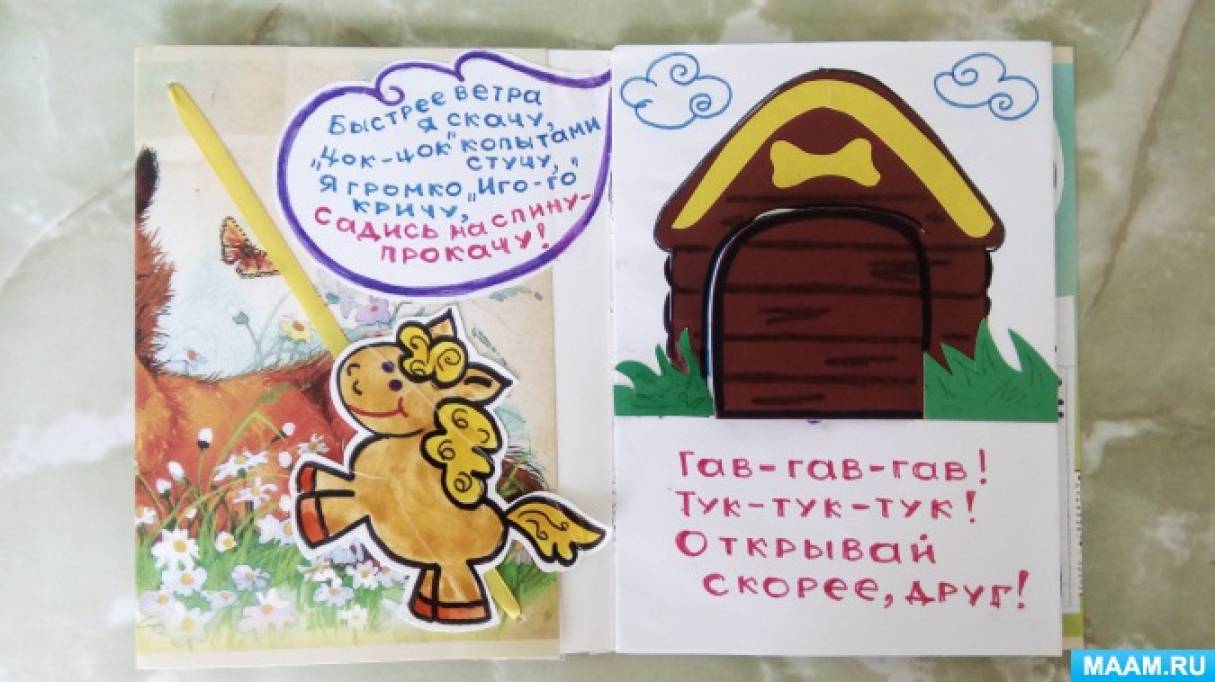 Быстрее ветра
я скачу,
„Цок-цок" копытами
стучу,
Я громко „Иго-го"
кричу,
Садись на спину-
прокачу!
Гав-гав-гав!
Тук-тук-тук!
Открывай
скорее, друг!
MAAM.RU